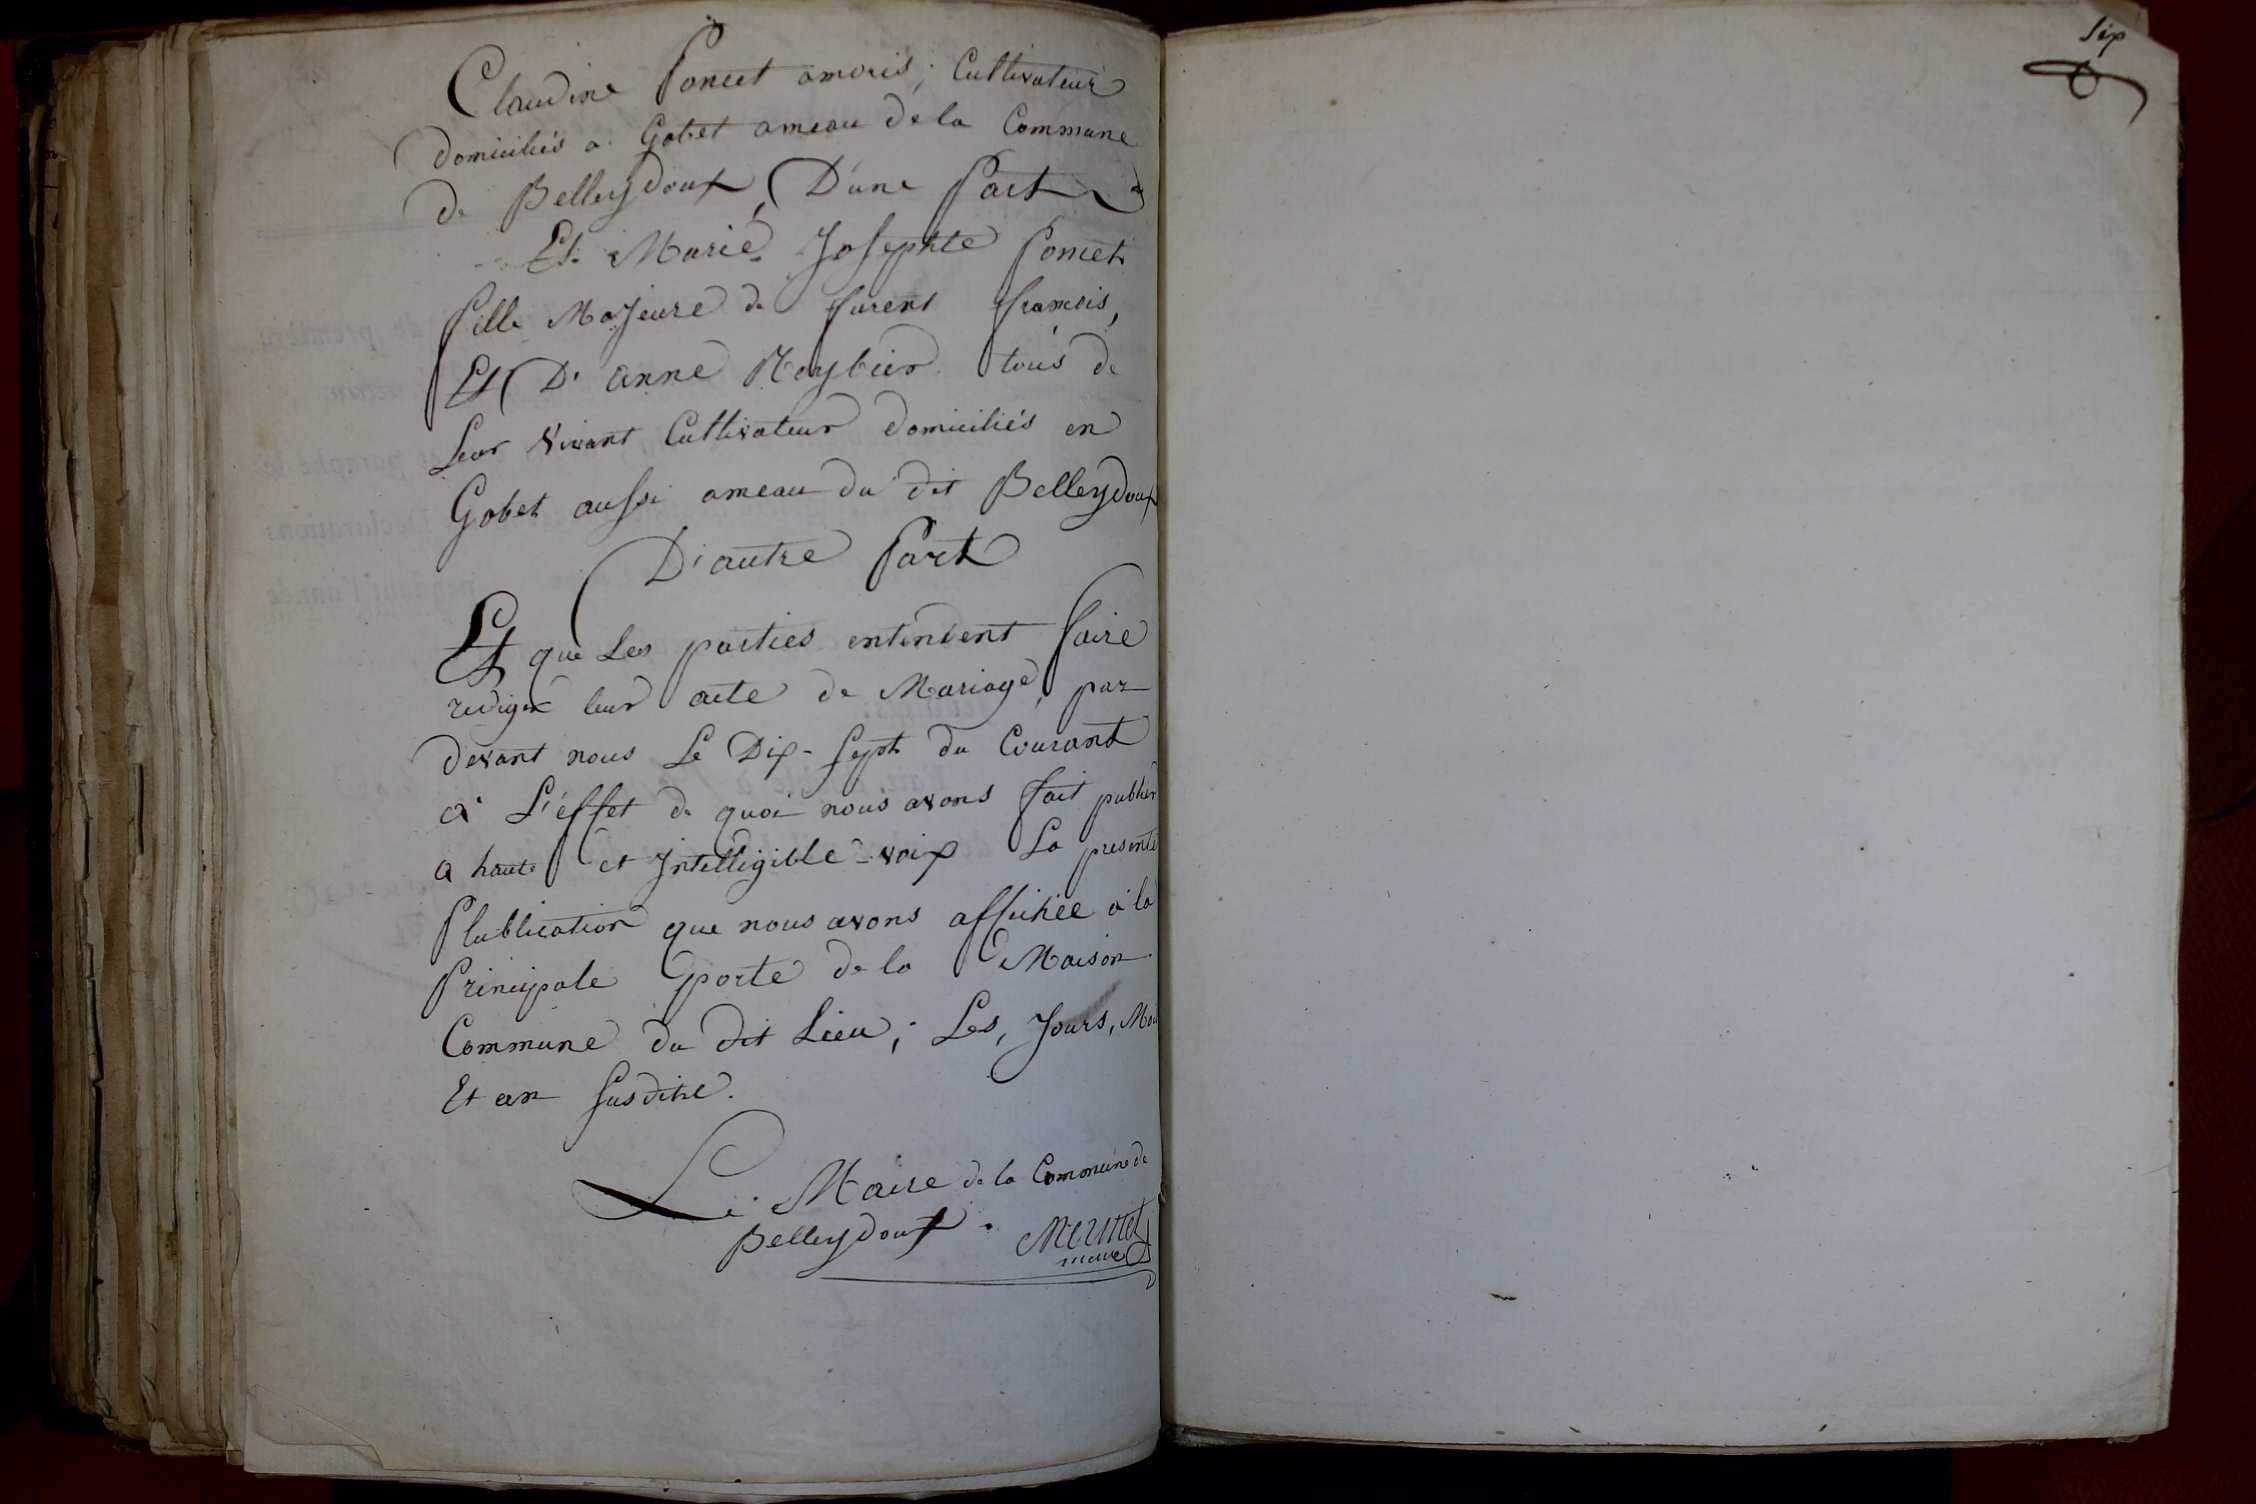 Claudine Poncet amoris; Cultivateur
domiciliés a Gobet ameau de la Commune
de Belleydoux, D'une Part
Et Marie Josephte Poncet
fille Majeure de furent francois,
Et D'anne Meybier tous de
Leur Vivant Cultivateur domiciliés en
Gobet aussi ameau du dit Belleydoux
D'autre Part
Et que Les parties entendent faire
rediger leur acte de Mariage, par
devant nous Le Dix-sept du Courant
a L'effet de quoi nous avons fait publier
a haute et Intelligible-voix La presente
Plublication que nous avons affichée a la
Principale porte de la Maison
Commune du dit Lieu; Les, Jours, Mois
Et an susditte.
Le Maire de la Commune de
Belleydoux.
maire
Six